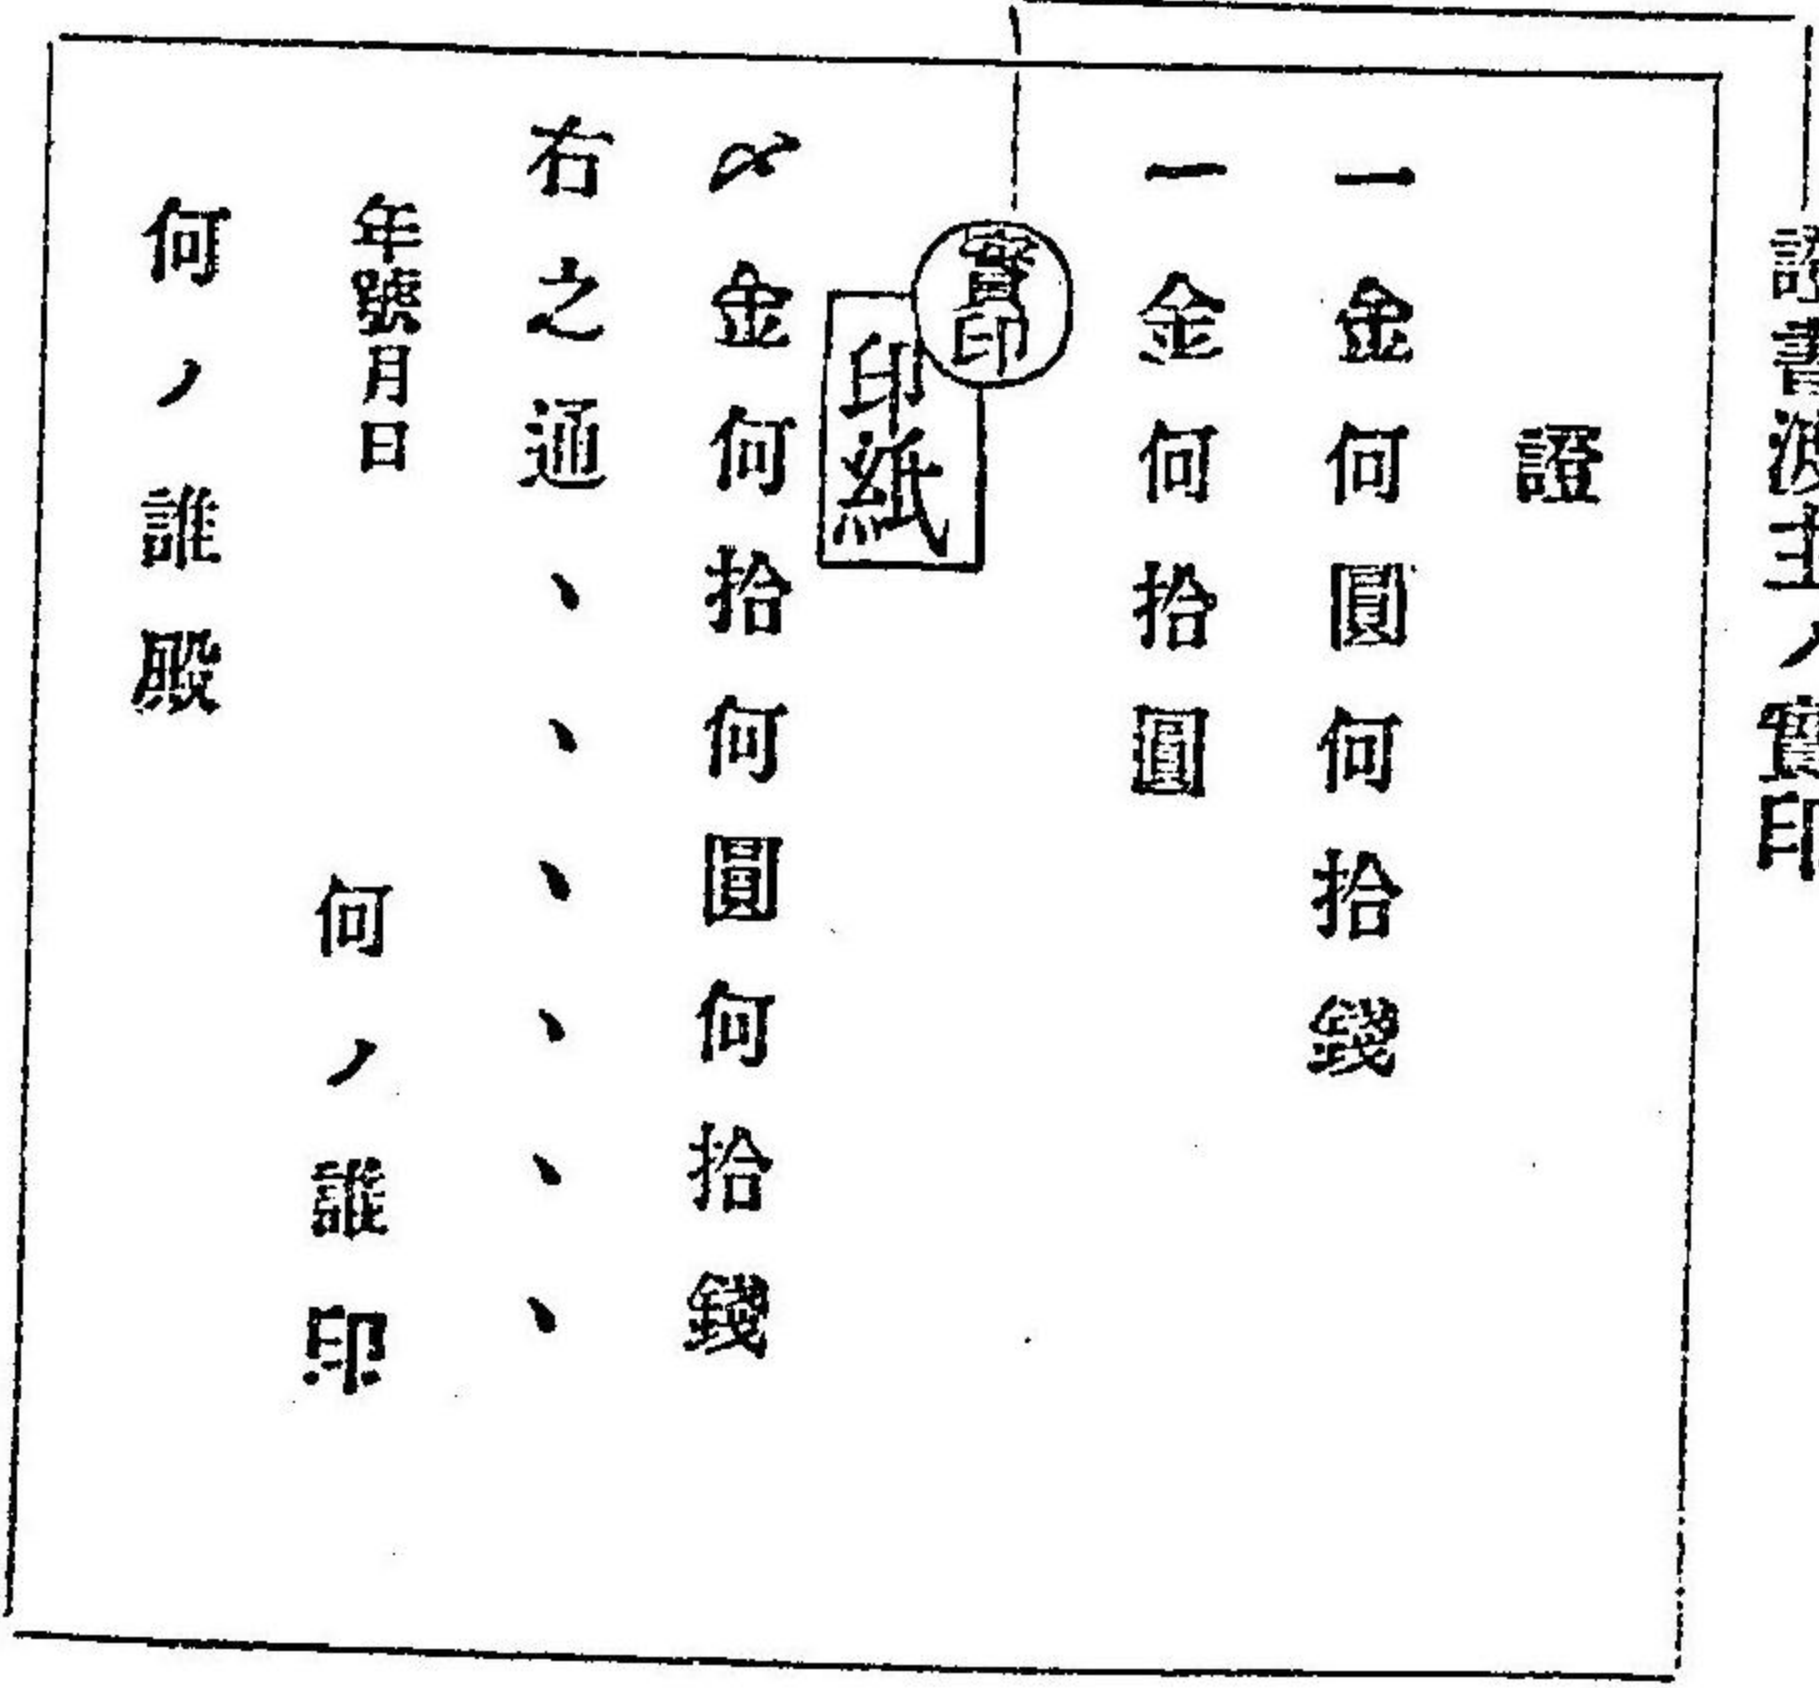 證書渡主ノ實印
證
一金何圓何拾錢
一金何拾圓
實印
印紙
〆金何拾何圓何拾錢
右之通、、、、、、
年號月日
何ノ誰印
何ノ誰殿